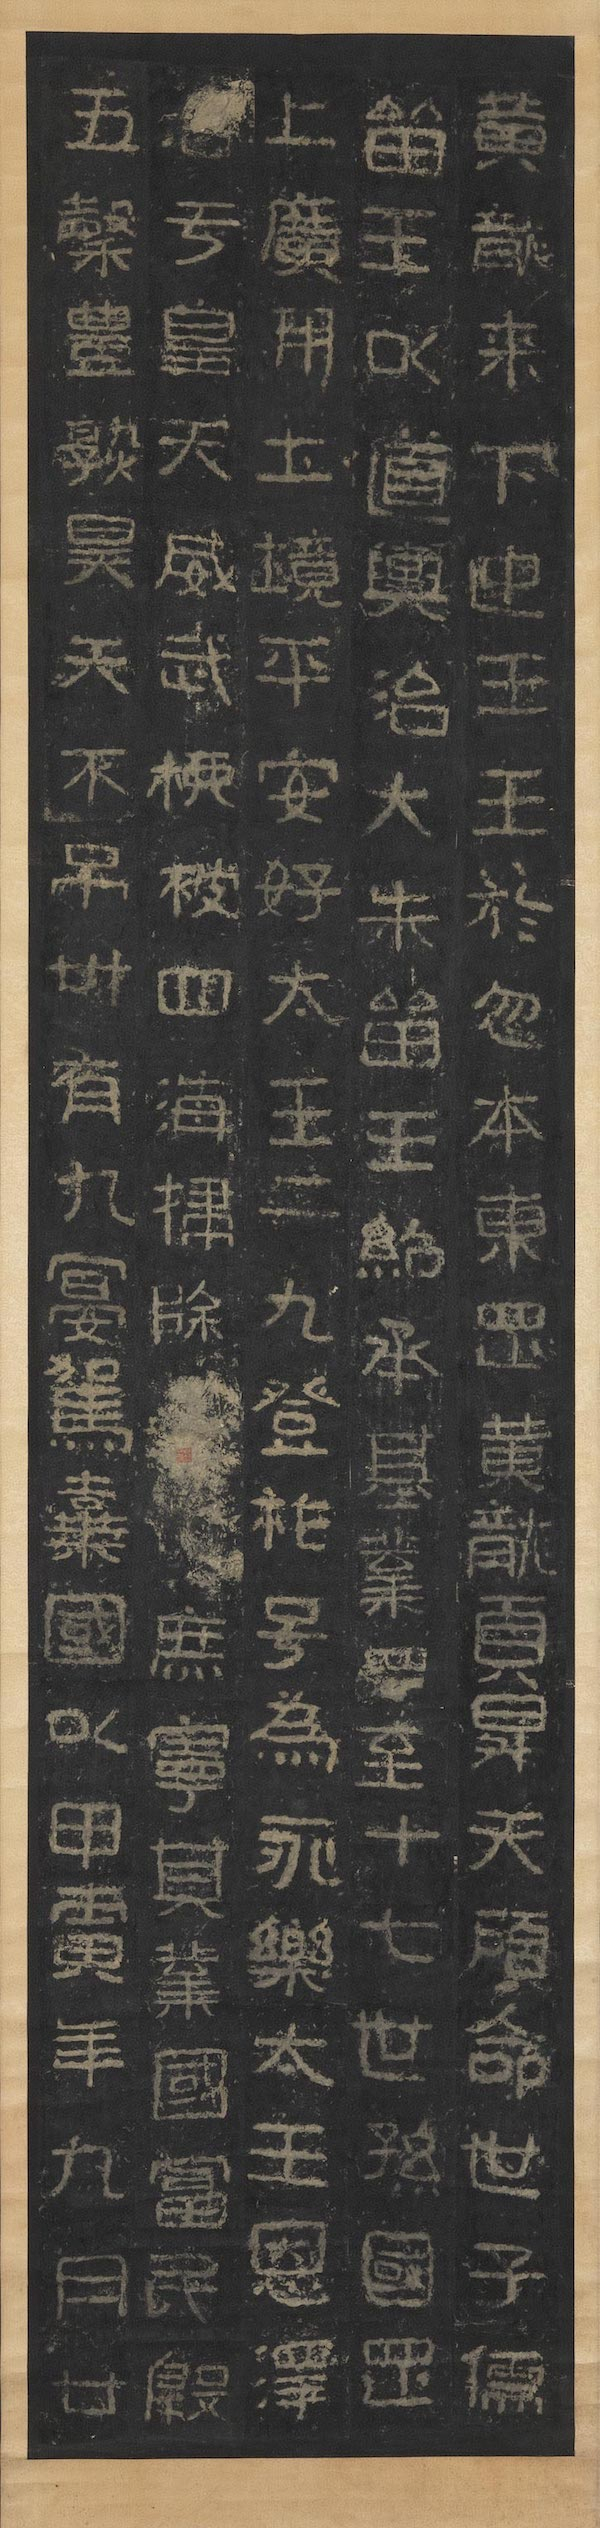 黃龍来下迎王王於忽本東罡黃龍頁昇天顧命世子儒
留王以道輿治大朱留王紹承基業至十七世孫國罡
上廣開土境平安好太王二九登祚号為永樂太王恩澤
于皇天威武振被四海掃除庶寧其業國富民殷
五穀豊熟昊天不弔卅有九宴駕棄國以甲寅年九月廿